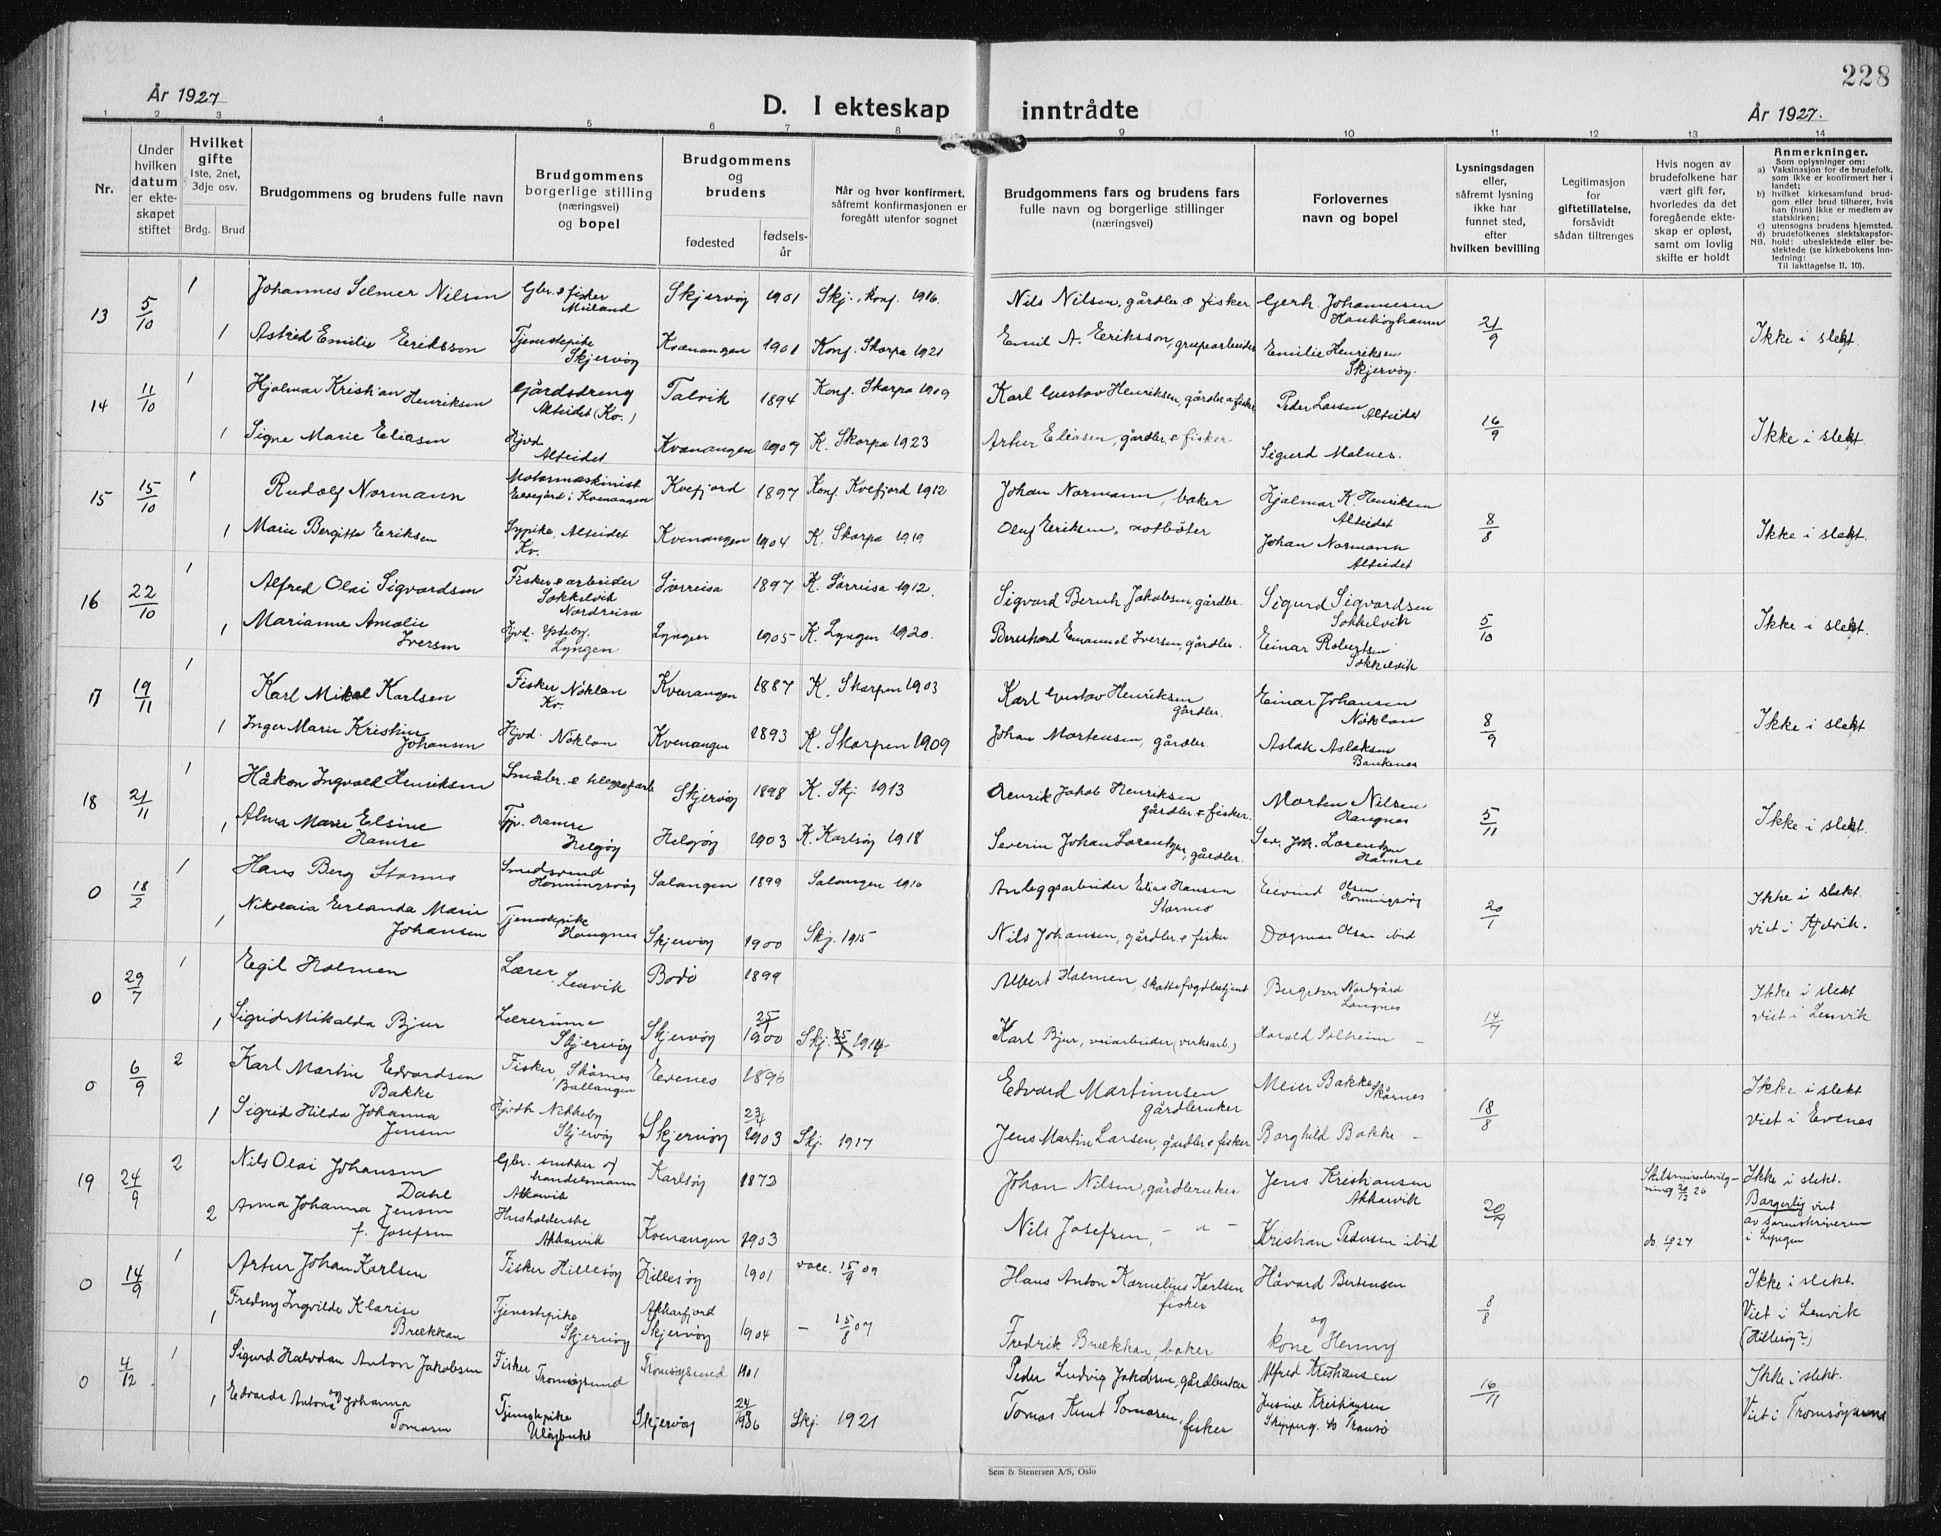 År 1927
D. I ekteskap inntrådte
228
År 1927.
1 2 3 4 5 6 7 8 9 10 11 12 13 14
Nr.
Under hvilken datum er ekteskapet stiftet
Hvilket gifte
1ste, 2net, 3dje osv.
Brdg. Brud
Brudgommens og brudens fulle navn
Brudgommens borgerlige stilling (næringsvei) og bopel
Brudgommens og brudens
fødested
fødselsår
Når og hvor konfirmert, såfremt konfirmasjonen er foregått utenfor sognet
Brudgommens fars og brudens fars fulle navn og borgerlige stillinger (næringsvei)
Forlovernes navn og bopel
Lysningsdagen eller, såfremt lysning ikke har funnet sted, efter hvilken bevilling
Legitimasjon for giftetillatelse, forsåvidt sådan tiltrenges
Hvis nogen av brudefolkene har vært gift før, hvorledes da det foregående ekteskap er opløst, samt om lovlig skifte er holdt
Anmerkninger.
Som oplysninger om:
a) Vaksinasjon for de brudefolk, som ikke er konfirmert her i landet;
b) hvilket kirkesamfund brudgom eller brud tilhører, hvis han (hun) ikke er medlem av statskirken;
c) utensogns brudens hjemsted.
d) brudefolkenes slektskapsforhold: ubeslektede eller beslektede (se kirkebokens innledning:
NB.
Til iakttagelse II. 10).
13 5/10 1 Johannes Selmer Nilsen Gbr. & fisker Meiland Skjervøy 1901 Skj., Konf. 1916. Nils Nilsen, gårdbr. & fisker. Gerh. Johannesen 21/9
1 Astrid Emilie Eriksson Tjenestepike Skjervøy Kvænangen 1901 Konf. Skorpa 1921 Emil A. Eriksson, grubearbeider Emilie Henriksen Skjervøy. Ikke i slekt.
14 11/10 1 Hjalmar Kristian Henriksen Gårdsdreng Alteidet (Kv.) Talvik 1894 Konf. Skorpa 1909 Karl Gustav Henriksen, gårdbr. & fisker Peder Larsen Alteidet 16/9
1 Signe Marie Eliasen Hjvd Alteidet Kvænangen 1907 K. Skorpa 1923 Artur Eliasen, gårdbr. & fisker Sigurd Malnes. Ikke i slekt.
15 15/10 1 Rudolf Normann Motormaskinist Elvegård i Kvenangen Kvefjord 1897 Konf. Kvefjord 1912 Johan Normann, baker Hjalmar K. Henriksen Alteidet 8/8
1 Marie Bergitte Eriksen Sypike, Alteidet Kv. Kvenangen 1904 K. Skorpa 1919 Oluf Eriksen, notbøter Johan Normann Alteidet Ikke i slekt.
16 22/10 1 Alfred Olai Sigvardsen Fisker & arbeider Sokkelvik Nordreisa Sørreisa 1897 K. Sørreisa 1912. Sigvard Bernh. Jakobsen, gårdbr. Sigurd Sigvardsen Sokkelvik 5/10
1 Marianne Amalie Iversen Hjvd. Ysteby, Lyngen Lyngen 1905 K. Lyngen 1920. Bernhard Emanuel Iversen, gårdbr. Einar Robertsen Sokkelvik Ikke i slekt.
17 19/11 1 Karl Mikal Karlsen Fisker Nøklan Kv. Kvenangen 1887 K. Skorpen 1903 Karl Gustav Henriksen gårdbr. Einar Johansen Nøklan 8/9
1 Inger Marie Kristine Johansen Hjvd. Nøklan Kvenangen 1893 K. Skorpen 1909 Johan Mortensen, gårdbr. Aslak Aslaksen Bankenes Ikke i slekt
18 21/11 1 Håkon Ingvald Henriksen Småbr. & telegrafarb Skjervøy 1898 K. Skj. 1913 Henrik Jakob Henriksen gårdbr. & fisker. Morten Nilsen Hangnes 5/11
1 Alma Marie Elsine Hamre Tjp. Hamre Helgøy Helgøy 1903 K. Karlsøy 1918 Severin Johan Lorentzen, gårdbr. Sev. Joh. Lorentzen Hamre Ikke i slekt.
0 18/2 1 Hans Berg Starnes Smedsvend Honningsvåg Salangen 1899 Salangen 1916 Anleggsarbeider Elias Hansen Starnes Eivind Olsen Honningsvåg 20/1 Ikke i slekt.
1 Nikolaia Erlanda Marie Johansen Tjenestepike Hangnes Skjervøy 1900 Skj. 1915 Nils Johansen, gårdbr. & fisker Dagmar Olsen ibid viet i Kjelvik.
0 29/7 1 Egil Holmen Lærer Lenvik Bodø 1899 Albert Holmen, skattefogdbetjent Birgitte Nordgård Langnes 14/7 Ikke i slekt
1 Sigrid Mikalda Bjur Lærerinne Skjervøy Skjervøy 25/1 1900 Skj. 25/7 1914 Karl Bjur, veiarbeider (virksarb.) Harald Solheim — viet i Lenvik
0 6/9 2 Karl Martin Edvardsen Bakke Fisker, Skårnes Ballangen Evenes 1896 Edvard Martinusen gårdbruker Meier Bakke Skårnes 18/8 Ikke i slekt
1 Sigrid Hilda Johanna Jensen Hjvdtr Nikkeby Skjervøy Skjervøy 23/4 1903 Skj. 1917 Jens Martin Larsen, gårdbr & fisker Borghild Bakke — viet i Evenes
19 24/9 2 Nils Olai Johansen Dahl Gbr. snekker og handelsmann Akkarvik Karlsøy 1873 Johan Nilsen, gårdbruker Jens Kristiansen Akkarvik 20/9 Skilsmissebevilgning 20/12 26 Ikke i slekt.
2 Anna Johanna Jensen f. Josefsen Husholderske Akkarvik Kvenangen 1903 Nils Josefsen, — " — Kristian Pedersen ibid do. 1927 Borgerlig viet av sorenskriveren i Lyngen
0 14/9 1 Artur Johan Karlsen Fisker Hillesøy Hillesøy 1901 vacc. 15/9 09 Hans Anton Kornelius Karlsen fisker Håvard Berntsen 8/8 Ikke i slekt.
1 Fredny Ingvilde Klarise Brækkan Tjenestepike Skjervøy Akkarfjord Skjervøy 1904 — 15/8 07 Fredrik Brækkan, baker og kone Henny Viet i Lenvik (Hillesøy?)
0 4/12 1 Sigurd Halvdan Anton Jakobsen Fisker Tromsøysund Tromsøysund 1901 Peder Ludvig Jakobsen, gårdbruker Alfred Kristiansen 16/11 Ikke i slekt.
1 Edvarda Antonie Johanna Tomasen Tjenestepike Uløybukt Skjervøy 24/8 1906 Skj. 1921 Tomas Knut Tomasen, fisker Jensine Kristiansen Skipperg. 40 Tromsø Viet i Tromsøysund
Sem & Stenersen A/S, Oslo